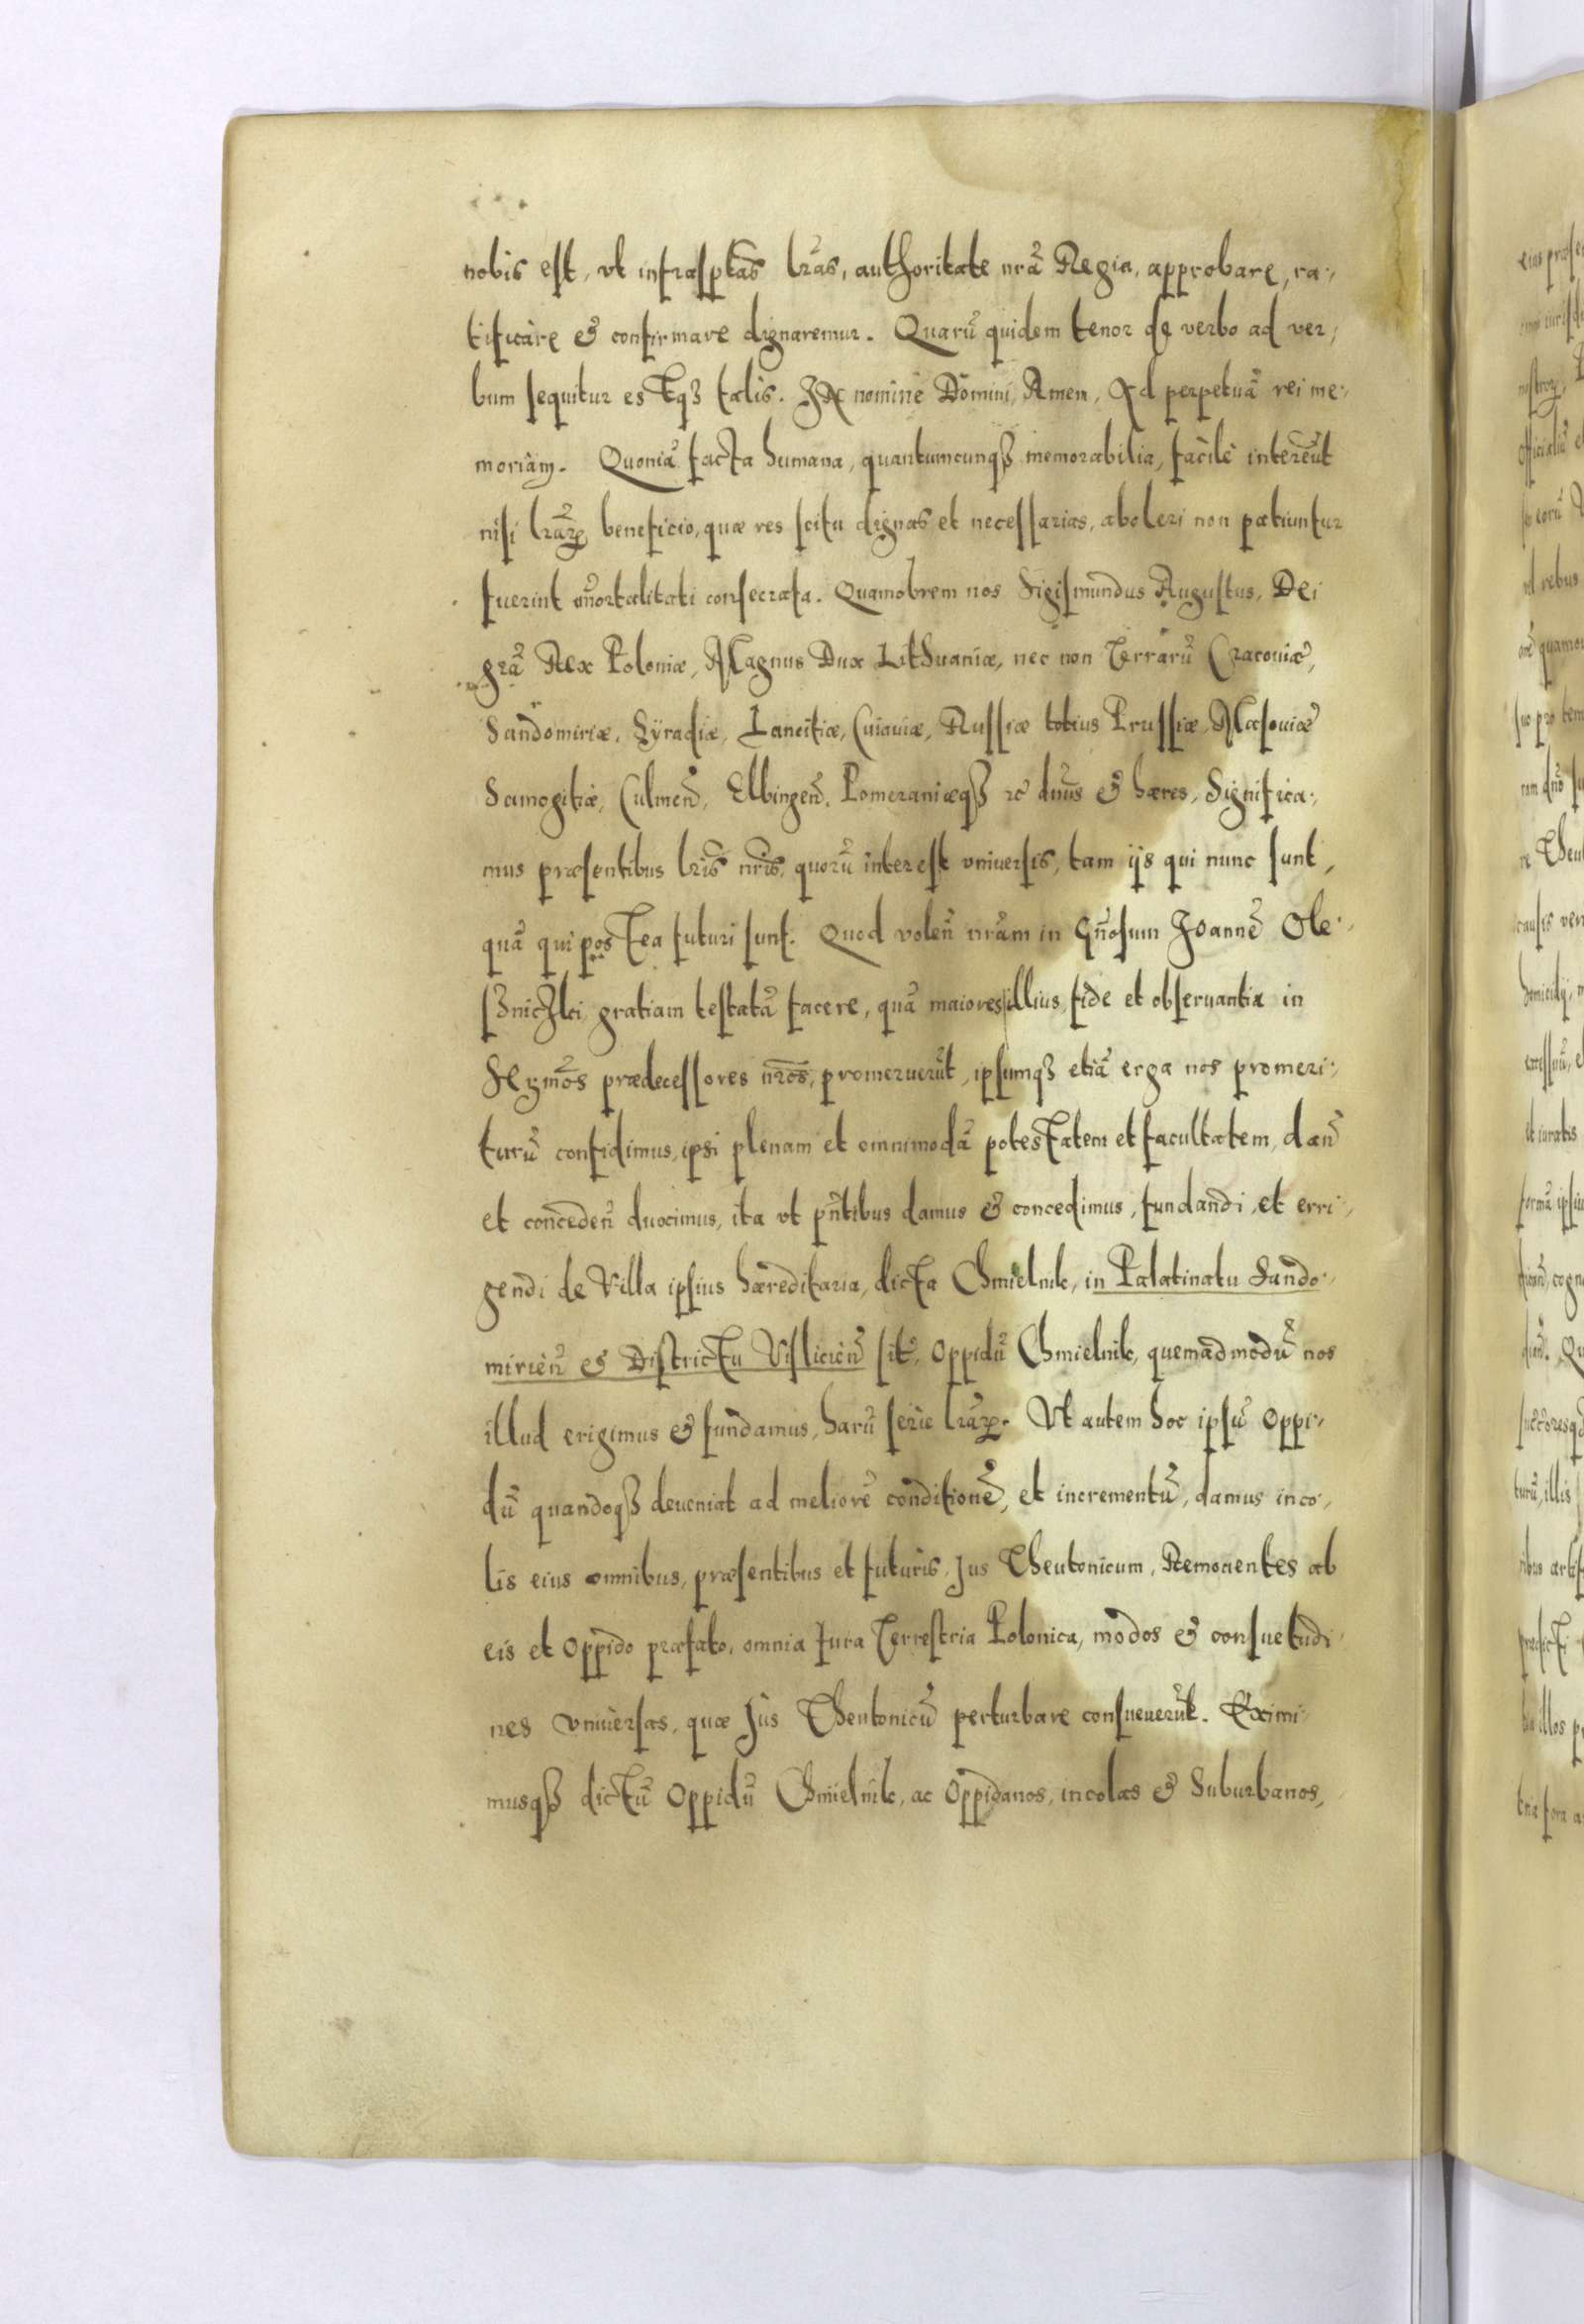 nobis est, vt infrasptãs lrãs, authoritate nrã Regia, approbare, ra-
tificàre & confirmare dignaremur. Quarũ quidem tenor de verbo ad ver-
bum sequitur estq3 talis. In nomine Domini, Amen, Ad perpetuã rei me-
moriàm. Quoniã facta humana, quantumcunq3 memorabilia, facilè intereũt
nisi lrãrꝝ beneficio, quæ res scitu dignas et necessarias, aboleri non patiuntur
fuerint im̃ortalitati consecrata. Quamobrem nos Sigismundus Augustus, Dei
grã Rex Poloniæ, Magnus Dux Lithuaniæ, nec non Terrarũ Cracouiæ,
Sandomiriæ, Syradiæ, Lancitiæ, Cuiauiæ, Russiæ totius Prussiæ, Masouiæ
Samogitiæ, Culmeñ, Elbingeñ, Pomeraniæq3 &c dnũs & hæres, Significa-
mus præsentibus lrĩs nrĩs, quorũ interest vniuersis, tam ijs qui nunc sunt,
quã qui postea futuri sunt. Quod voleñ nrãm in Gñosum Joannẽ Ole-
szniczki gratiam testatã facere, quã maiores illius fide et obseruantia in
Sermõs prædecessores nrõs, promeruerũt, ipsumq3 etiã erga nos promeri-
turũ confidimus, ipsi plenam et omnimodã potestatem et facultatem, dañ
et concedeñ duximus, ita vt pñtibus damus & concedimus, fundandi, et erri-
gendi de Villa ipsius hæreditaria, dicta Chmielnik, in Palatinatu Sando-
mirieñ & Districtu Vislicieñ sit, Oppidũ Chmielnik, quemadmodũ nos
illud erigimus & fundamus, harũ serie lrãrꝝ. Vt autem hoc ipsũ Oppi-
dũ quandoq3 deueniat ad meliorẽ conditionẽ, et incrementũ, damus inco-
lis eius omnibus, præsentibus et futuris, Jus Theutonicum, Remouentes ab
eis et Oppido præfato, omnia Jura Terrestria Polonica, modos & consuetudi-
nes vniuersas, quæ Jus Theutonicũ perturbare consueuerũt. Eximi-
musq3 dictũ Oppidũ Chmielnik, ac Oppidanos, incolas & Suburbanos,